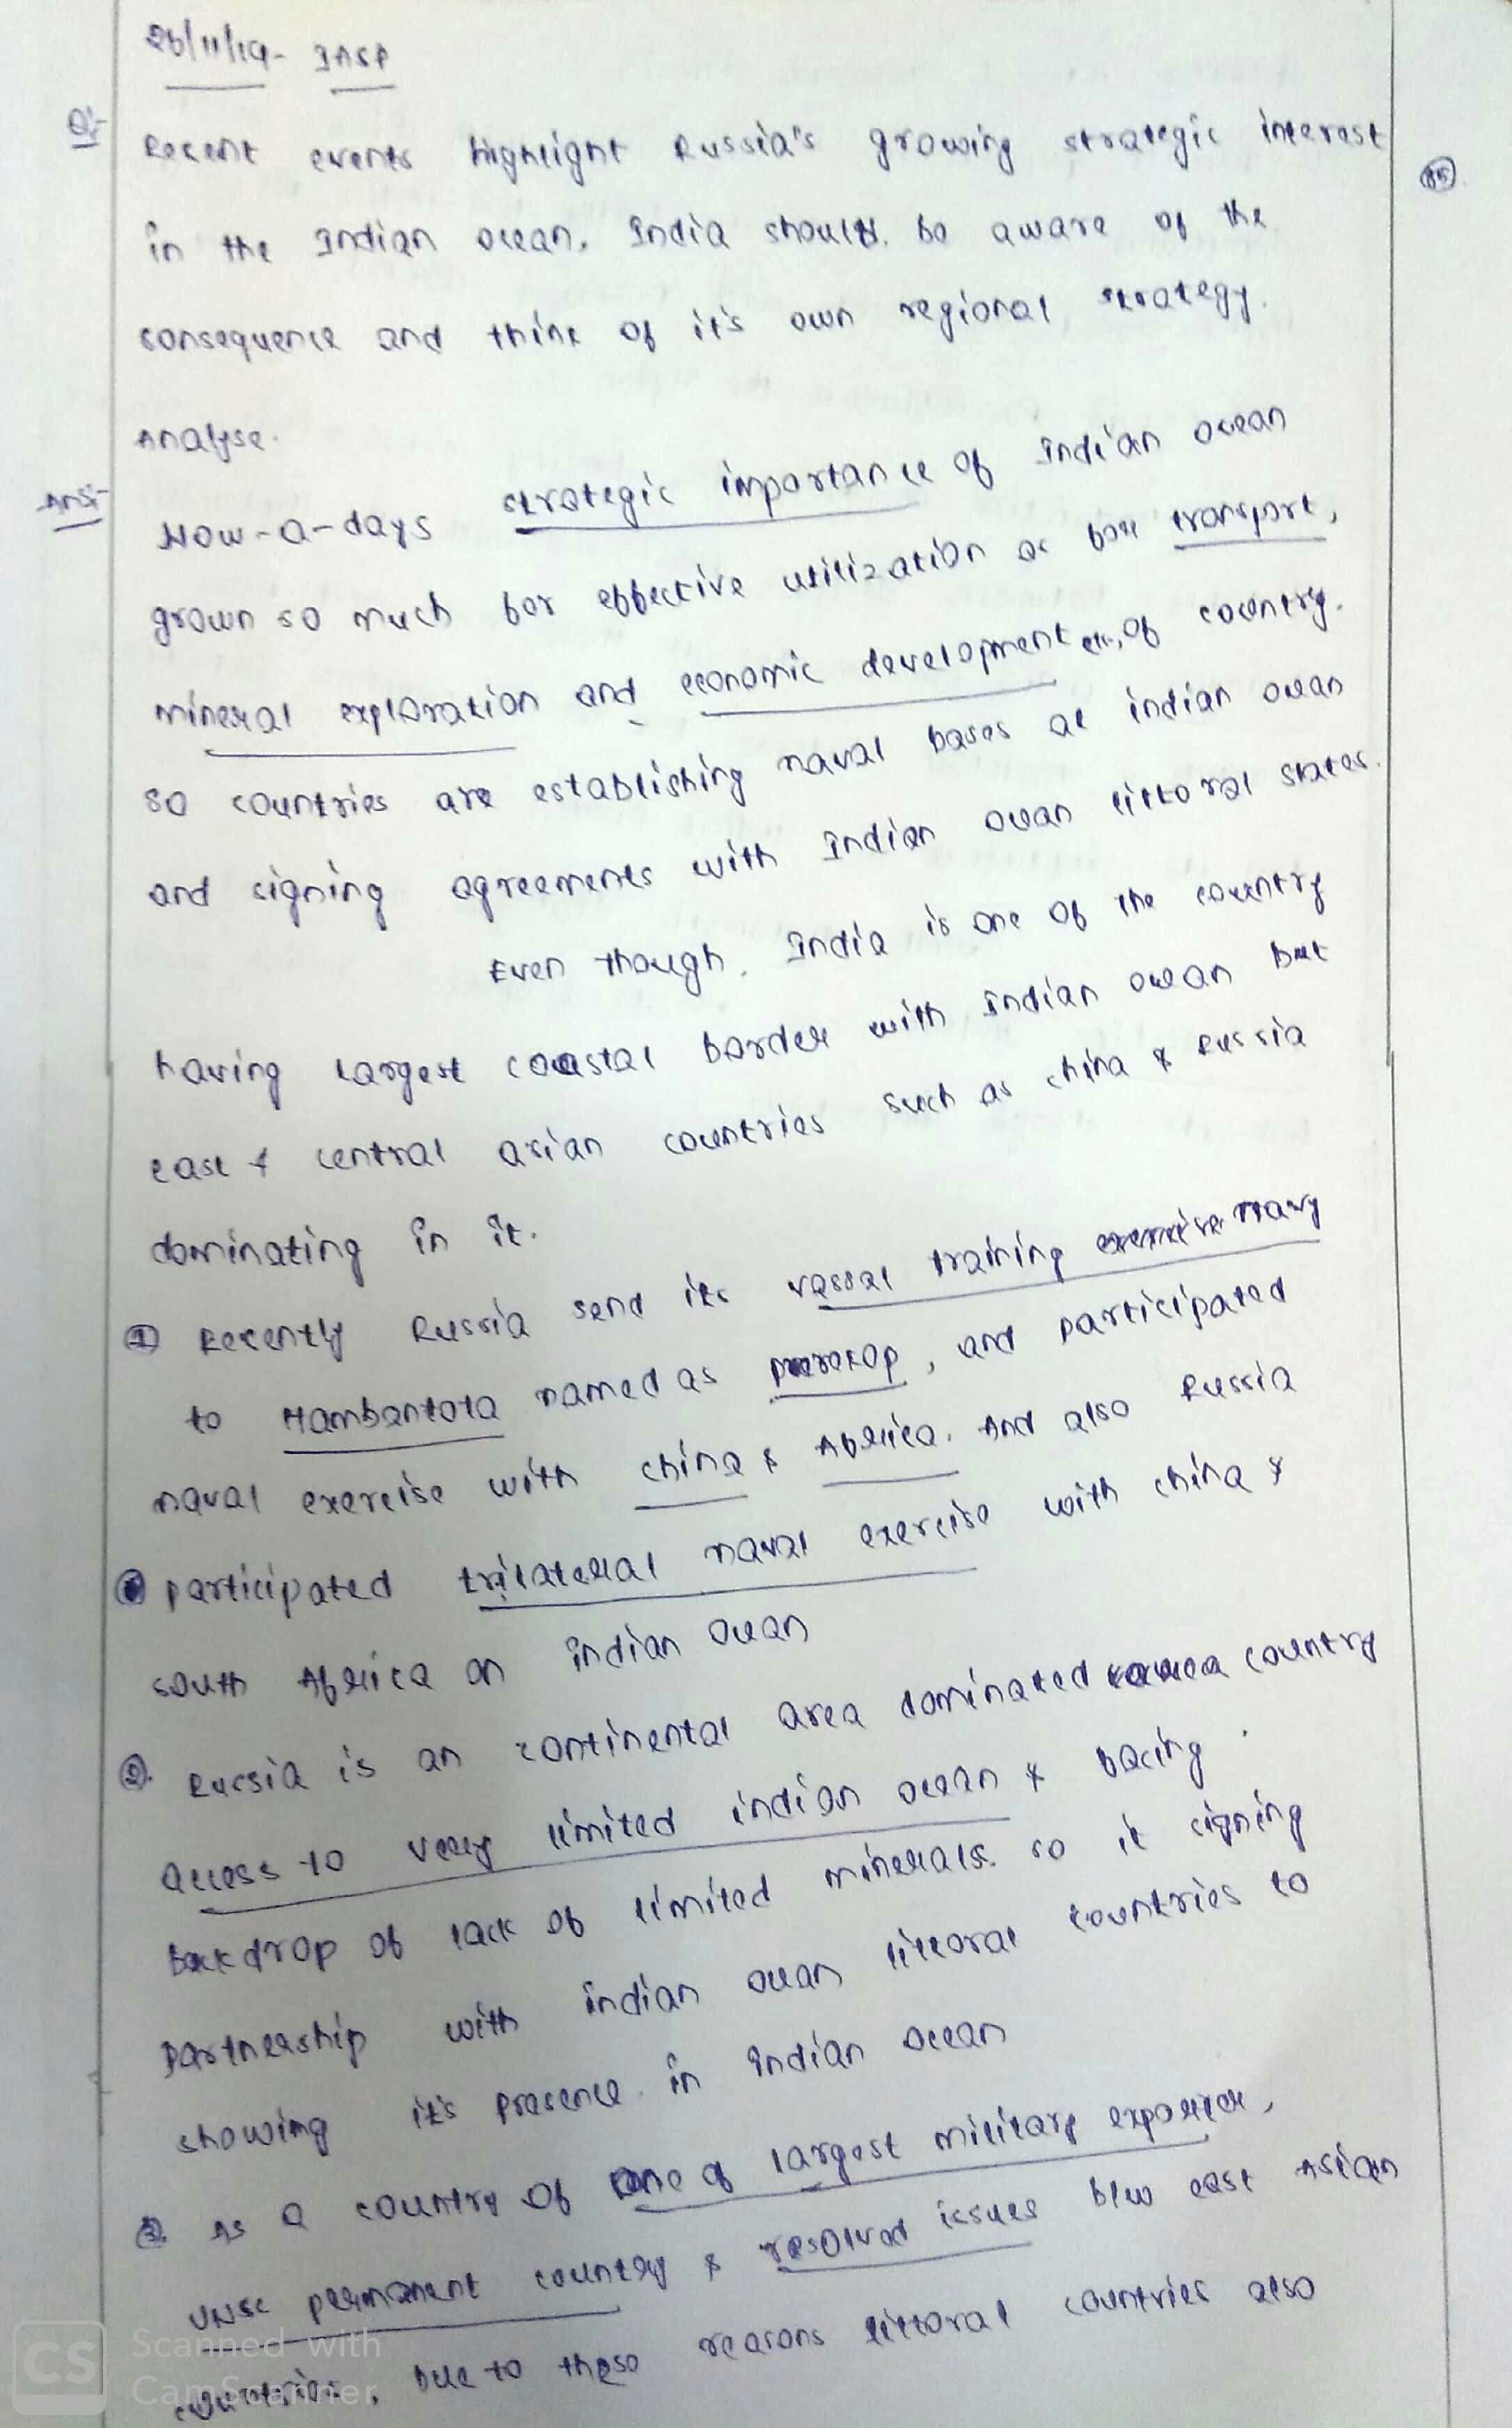 26/11/19- INSP
Q:- Recent events highlight Russia's growing strategic interest
in the Indian ocean. India should be aware of the
consequence and think of it's own regional strategy.
Analyse.
Ans:- Now-a-days strategic importance of Indian ocean
grown so much for effective utilization as for transport,
mineral exploration and economic development etc, of country.
so countries are establishing naval bases at indian ocean
and signing agreements with Indian ocean littoral states.
Even though, India is one of the country
having largest coastal border with Indian ocean but
east & central asian countries such as china & Russia
dominating in it.
① Recently Russia send its vessel training navy
to Hambantota named as perekop, and participated
naval exercise with china & Africa. And also Russia
participated trilateral naval exercise with china &
south Africa on indian ocean
②. Russia is an continental area dominated country
access to very limited indian ocean & facing
backdrop of lack of limited minerals. so it signing
partnership with indian ocean littoral countries to
showing it's presence in indian ocean
③. As a country of one of largest military exporter,
UNSC permanent country & resolved issues b/w east Asian
countries, Due to these reasons littoral countries also
CS Scanned with
CamScanner